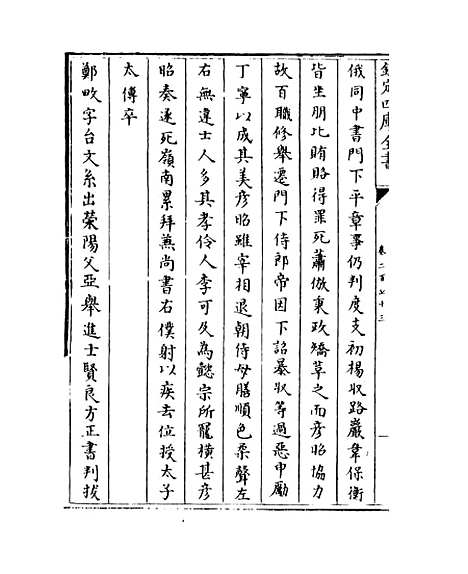 欽定四庫全書
卷二百七十三
俄同中書門下平章事仍判度支初楊收路巖韋保衡
皆坐朋比賄賂得罪死蕭倣秉政矯革之而彥昭協力
故百職修舉遷門下侍郎帝因下詔暴收等過惡申勵
丁寧以成其美彥昭雖宰相退朝侍母膳順色柔聲左
右無違士人多其孝伶人李可及為懿宗所寵橫甚彥
昭奏逐死嶺南累拜兼尚書右僕射以疾去位授太子
太傅卒
鄭畋字台文系出滎陽父亞舉進士賢良方正書判拔